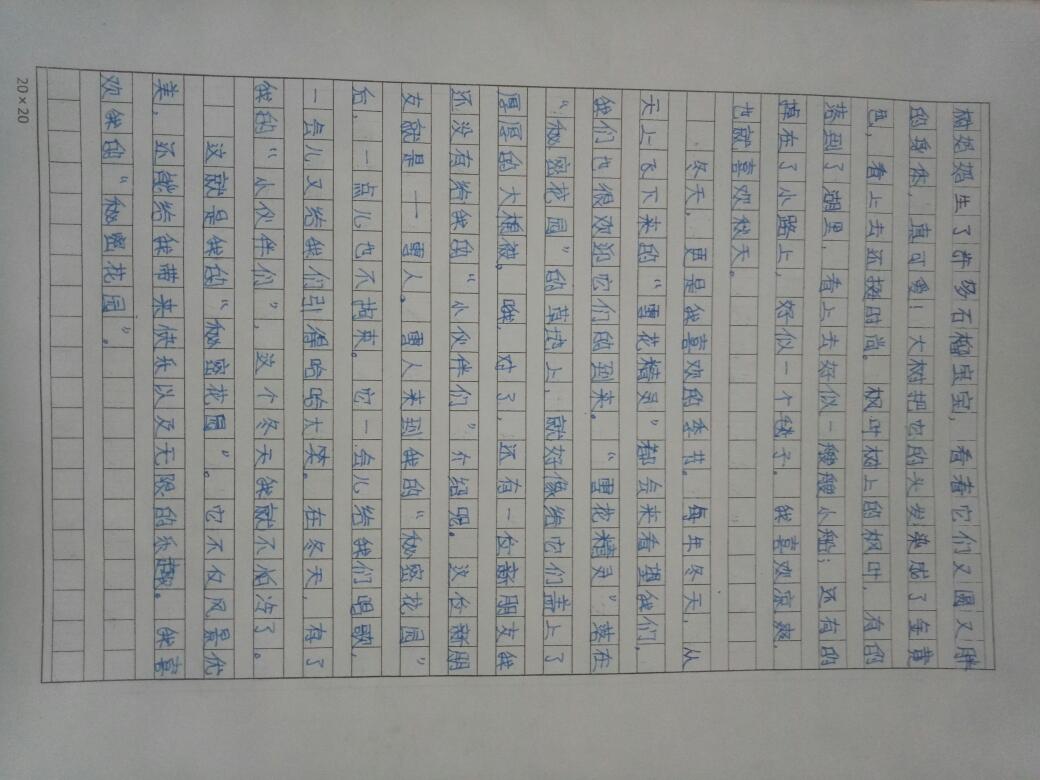 树妈妈生了许多石榴宝宝，看着它们又圆又胖
的身体，真可爱！大树把它的头发染成了金黄
色，看上去还挺时尚。枫叶树上的枫叶，有的
落到了湖里，看上去好似一艘艘小船；还有的
掉在了小路上，好似一个毯子。我喜欢凉爽，
也就喜欢秋天。
冬天，更是我喜欢的季节。每年冬天，从
天上飞下来的“雪花精灵”都会来看望我们，
我们也很欢迎它们的到来。“雪花精灵”落在
“秘密花园”的草地上，就好像给它们盖上了
厚厚的大棉被。哦，对了，还有一位新朋友我
还没有给我的“小伙伴们”介绍呢。这位新朋
友就是——雪人。雪人来到我的“秘密花园”
后，一点儿也不拘束。它一会儿给我们唱歌，
一会儿又给我们引得哈哈大笑。在冬天，有了
我的“小伙伴们”，这个冬天我就不怕冷了。
这就是我的“秘密花园”。它不仅风景优
美，还能给我带来快乐以及无限的乐趣。我喜
欢我的“秘密花园”。
20×20